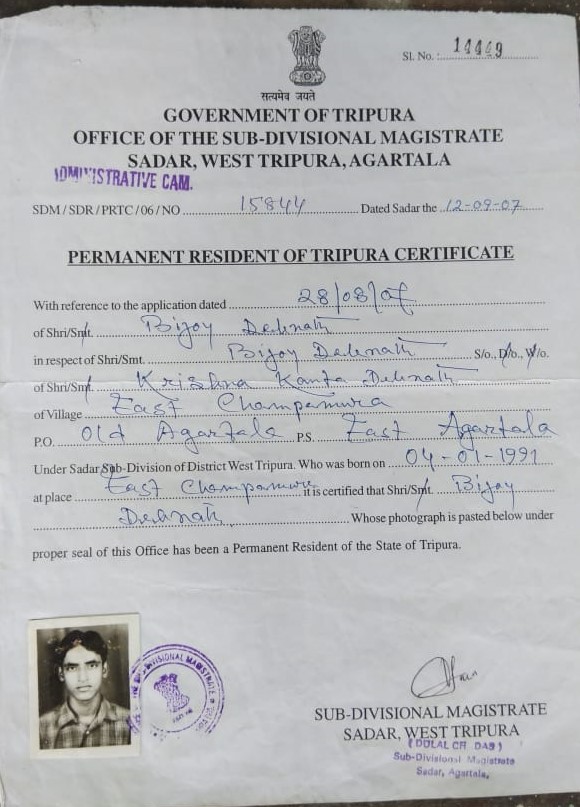 Sl. No. : 14449
सत्यमेव जयते
GOVERNMENT OF TRIPURA
OFFICE OF THE SUB-DIVISIONAL MAGISTRATE
SADAR, WEST TRIPURA, AGARTALA
ADMINISTRATIVE CAM.
SDM / SDR / PRTC / 06 / NO 15844 Dated Sadar the 12-09-07
PERMANENT RESIDENT OF TRIPURA CERTIFICATE
With reference to the application dated 28/08/07
of Shri/Smt. Bijoy Debnath
in respect of Shri/Smt. Bijoy Debnath S/o., D/o., W/o.
of Shri/Smt. Krishna Kanta Debnath
of Village East Champamura
P.O. Old Agartala P.S. East Agartala
Under Sadar Sub-Division of District West Tripura. Who was born on 04-01-1991
at place East Champamura it is certified that Shri/Smt. Bijoy
Debnath Whose photograph is pasted below under
proper seal of this Office has been a Permanent Resident of the State of Tripura.
SUB-DIVISIONAL MAGISTRATE
SUB-DIVISIONAL MAGISTRATE
SADAR, WEST TRIPURA
(DULAL CH DAS)
Sub-Divisional Magistrate
Sadar, Agartala,